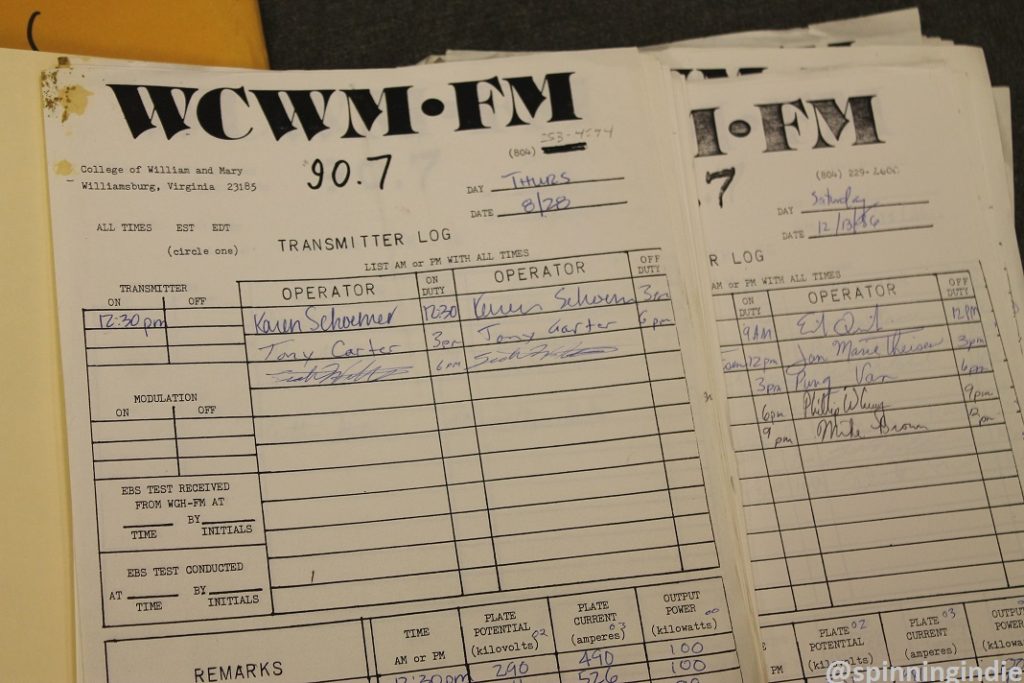 WCWM•FM
90.7
(804) 253-4594
College of William and Mary
Williamsburg, Virginia 23185
DAY THURS
DATE 8/28
ALL TIMES EST EDT
(circle one)
TRANSMITTER LOG
LIST AM or PM WITH ALL TIMES
TRANSMITTER
ON OFF
OPERATOR ON DUTY OPERATOR OFF DUTY
12:30pm Karen Schoemer 12:30 Karen Schoemer 3pm
Tony Carter 3pm Tony Carter 6pm
6pm
MODULATION
ON OFF
EBS TEST RECEIVED
FROM WGH-FM AT
BY
TIME INITIALS
EBS TEST CONDUCTED
AT BY
TIME INITIALS
REMARKS
TIME
AM or PM
PLATE
POTENTIAL 02
(kilovolts)
PLATE
CURRENT 03
(amperes)
OUTPUT
POWER 00
(kilowatts)
12:30pm 290 490 100
526 100
M
I•FM
7
(804) 229-2600
DAY Saturday
DATE 12/13/86
R LOG
AM or PM WITH ALL TIMES
ON DUTY OPERATOR OFF DUTY
9AM 12PM
12pm 3pm
3pm 6pm
6pm 9pm
9pm Mike Brown
PM
PLATE 02
POTENTIAL
(kilovolts)
PLATE 03
CURRENT
(amperes)
OUTPU
POWER
(kilowa
@spinningindie